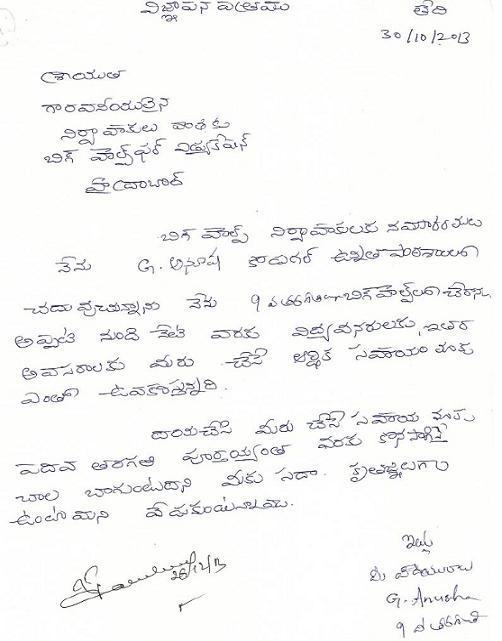 విజ్ఞాపన పత్రము
తేది
30/10/2013
శ్రీయుత
గౌరవనీయులైన
నిర్వాహకులు
బిగ్ హెల్ప్ ఫర్ ఎడ్యుకేషన్
హైదరాబాద్
బిగ్ హెల్ప్ నిర్వాహకులకు నమస్కారములు
నేను G. అనూష ఉన్నత పాఠశాలలో
చదువుచున్నాను నేను 9వ తరగతిలో బిగ్ హెల్ప్ లో చేరాను.
అప్పటి నుండి నేటి వరకు విద్యావనరులకు, ఇతర
అవసరాలకు మీరు చేసే ఆర్థిక సహాయం మాకు
ఎంతో ఉపయోగపడుతున్నది.
దయచేసి మీరు చేసే సహాయం మాకు
పదవ తరగతి పూర్తయ్యేంత వరకు కొనసాగిస్తే
చాలా బాగుంటుందని మీకు సదా కృతజ్ఞులుగా
ఉంటామని వేడుకుంటున్నాము.
ఇట్లు
మీ విధేయురాలు
G. Anusha
9వ తరగతి
28/12/13